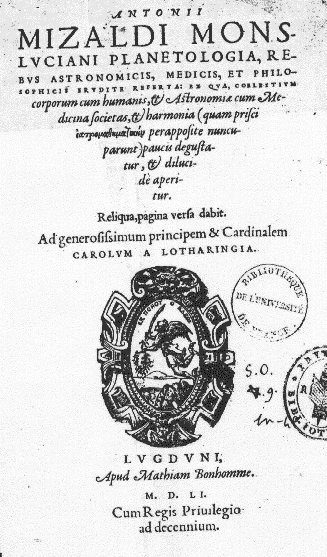 ANTONII
MIZALDI MONS-
LVCIANI PLANETOLOGIA, RE-
BVS ASTRONOMICIS, MEDICIS, ET PHILO-
SOPHICIS ERVDITE REFERTA: EX QVA, COELESTIVM
corporum cum humanis, & Astronomiæ cum Me-
dicina societas, & harmonia (quam prisci
ἰατρομαθηματικὴν perapposite nuncu-
parunt) paucis degusta-
tur, & diluci-
dè aperi-
tur.
Reliqua, pagina versa dabit.
Ad generosissimum principem & Cardinalem
CAROLVM A LOTHARINGIA.
BIBLIOTHEQUE
DE L'UNIVERSITÉ
DE FRANCE.
S.O.
4.9.
in-4
LVGDVNI,
Apud Mathiam Bonhomme.
M. D. LI.
Cum Regis Priuilegio
ad decennium.